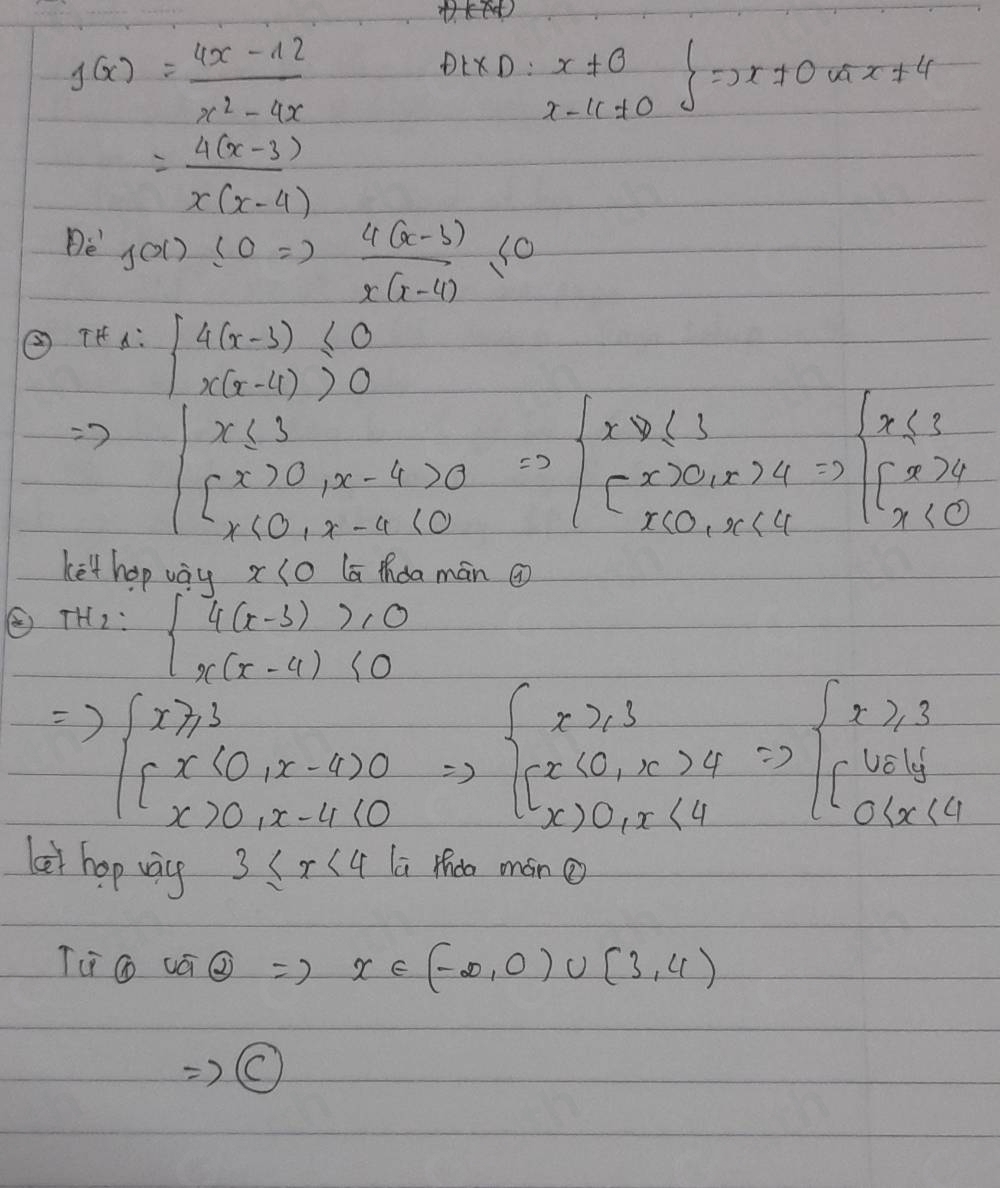 ĐKXĐ
f(x) = (4x - 12)/(x² - 4x) ĐKXĐ: { x ≠ 0 ; x - 4 ≠ 0 } => x ≠ 0 và x ≠ 4
= 4(x-3)/(x(x-4))
Để f(x) ≤ 0 => 4(x-3)/(x(x-4)) ≤ 0
TH1: { 4(x-3) ≤ 0
x(x-4) > 0
=> { x ≤ 3 ; [ x > 0, x - 4 > 0 ; x < 0, x - 4 < 0 => { x ≤ 3 ; [ x > 0, x > 4 ; x < 0, x < 4 => { x ≤ 3 ; [ x > 4 ; x < 0
kết hợp vậy x < 0 là thỏa mãn ①
TH2: { 4(x-3) ≥ 0
x(x-4) < 0
=> { x ≥ 3 ; [ x < 0, x - 4 > 0 ; x > 0, x - 4 < 0 => { x ≥ 3 ; [ x < 0, x > 4 ; x > 0, x < 4 => { x ≥ 3 ; [ vô lý ; 0 < x < 4
kết hợp vậy 3 ≤ x < 4 là thỏa mãn ②
Từ ① và ② => x ∈ (-∞, 0) ∪ [3, 4)
=> Ⓒ